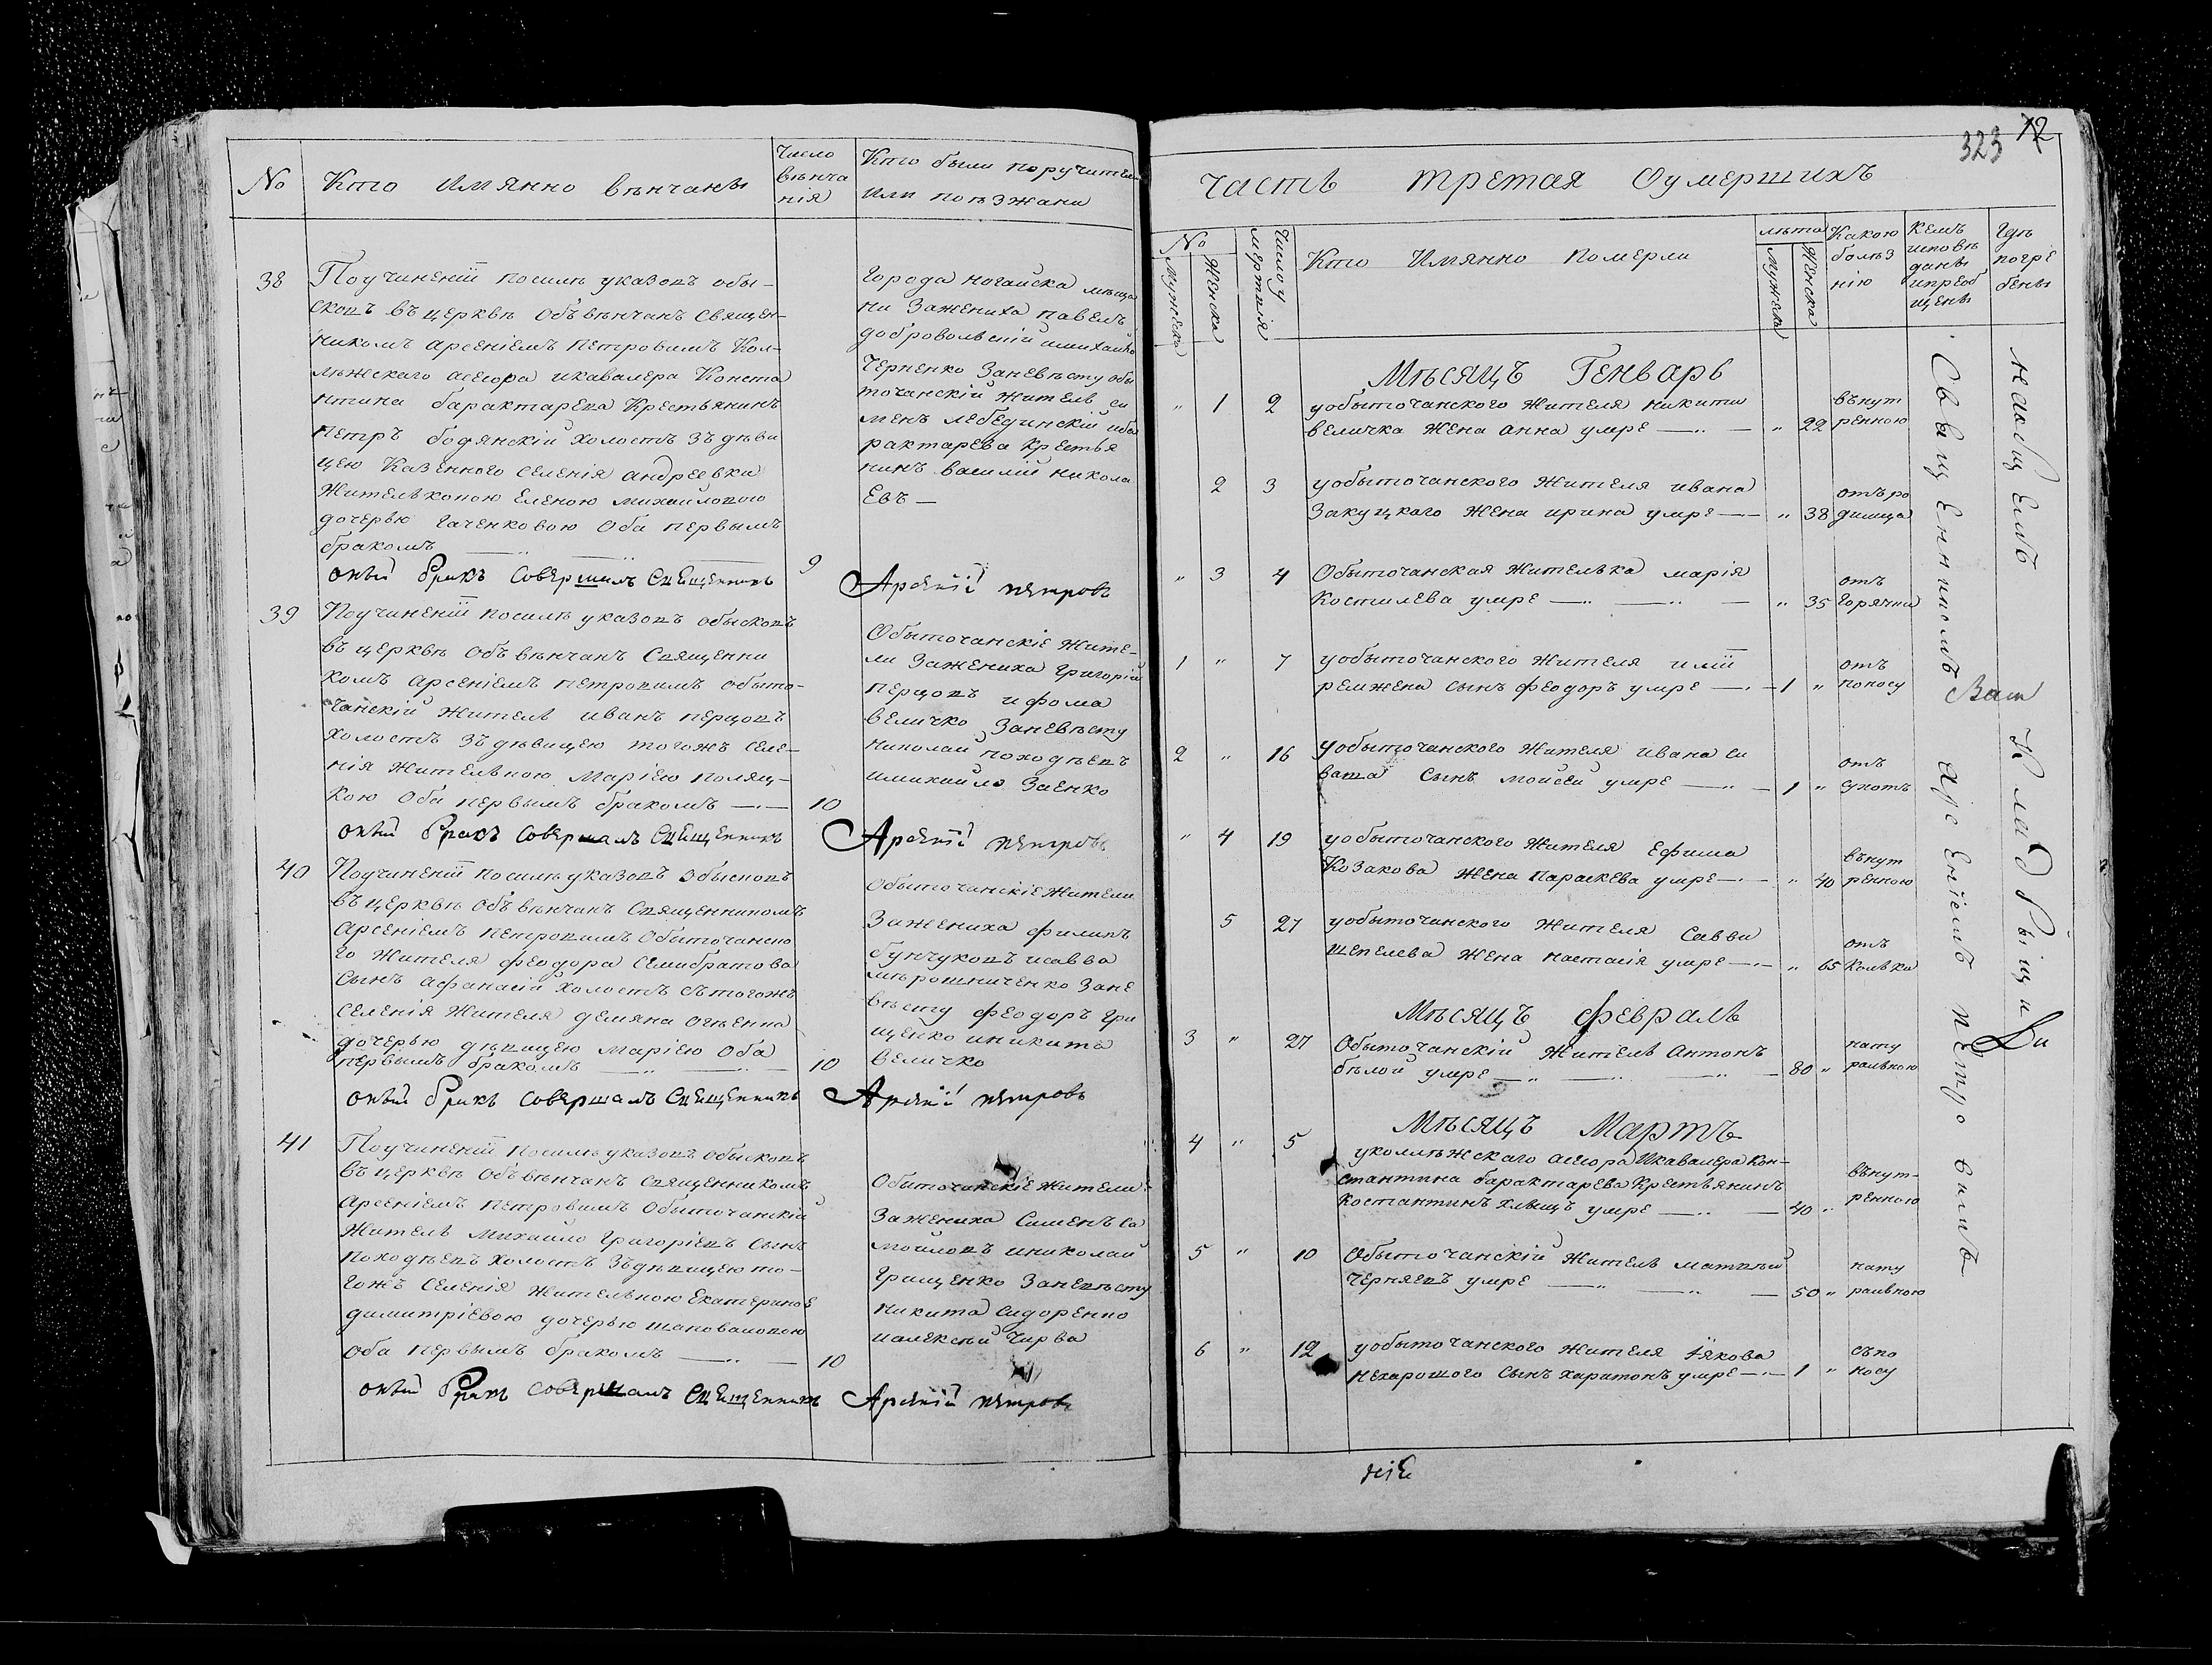 No
Кто Имянно вѣнчаны
Число
вѣнча
нія
Кто были поручители
Или поѣзжани
38
Поучиненіи посилѣ указовъ обы-
скопъ въ церквѣ Объвѣнчанъ Священ-
никомъ арсеніемъ Петровимъ Кол-
лѣжскаго асесора икавалера Конста
нтина барактарева Крестьянинъ
петръ бодянскій холостъ зъ дѣви
цею Казенного селенія андреевки
Жителькою Еленою михаиловою
дочерью гаченковою Оба первымъ
бракомъ
9
Города ногайска мѣща
ни Зажениха павелъ
добровольскій имихаило
Черненко Заневѣсту обы
точанскій житель си
менъ лебединскій иба
рактарева Крестья
нинъ василій никола
Евъ
оный бракъ совершилъ Священникъ Арсеній петровъ
39
Поучиненіи посилѣ указовъ обыскопъ
въ церквѣ Объвѣнчанъ Священни
комъ арсеніемъ петровимъ обыто-
чанскій житель иванъ перцовъ
холостъ зъ дѣвицею тогожъ селе-
нія жителькою Маріею поляц-
кою Оба первымъ бракомъ
10
Обыточанскіе Жите-
ли Зажениха Григорій
перцовъ ифома
величко Заневѣсту
николай походѣевъ
имихайло Заенко
оный бракъ совершалъ Священникъ Арсеній петровъ
40
Поучиненіи посилѣ указовъ обыскопъ
въ церквѣ Объвѣнчанъ Священникомъ
Арсеніемъ петровимъ Обыточанско
го жителя феодора Семибратова
сынъ афанасій холостъ сътогожъ
селенія Жителя демяна
дочерью дѣвицею Маріею Оба
первымъ бракомъ
10
Обыточанскіе жители
Зажениха филипъ
бунчуковъ исавва
мѣрошниченко Зане
вѣсту феодоръ гри
щенко иникита
величко
оный бракъ совершалъ Священникъ Арсеній петровъ
41
Поучиненіи посилѣ указовъ обыскопъ
въ церквѣ Объвѣнчанъ священникомъ
Арсеніемъ петровимъ Обыточанскій
Житель Михаило Григоріевъ сынъ
походѣевъ холостъ зъдѣвицею то-
гожъ селенія жителькою Екатериною
димитріевою дочерью шаповаловою
Оба первымъ бракомъ
10
Обыточанскіе жители
Зажениха Сименъ са
мойловъ иниколай
Грищенко Заневѣсту
никита сидоренко
иалексѣй Чирва
оный бракъ совершалъ Священникъ Арсеній петровъ
323 12
Часть третая Оумершихъ
No
Мужеска
Женска
Число у
мертвія
Кто Имянно померли
лѣта
Мужеска
Женска
Какою
болѣз
нію
Кемъ
исповѣ
даны
ипреоб
щены
Гдѣ
погре
бены
Мѣсяцъ Генварь
" 1 2 уобыточанского жителя никити
величка жена анна умре " 22 вънут
ренною
2 3 уобыточанского жителя ивана
Закуцкого жена ирина умре " 38 отъ ро
димца
" 3 4 Обыточанская жителька марія
Костилева умре " 35 отъ
горячки
1 " 7 уобыточанского жителя иліи
ремжена сынъ феодоръ умре 1 " отъ
поносу
2 " 16 уобыточанского жителя ивана си
ваша сынъ мойсей умре 1 " отъ
сухотъ
" 4 19 уобыточанского жителя Ефима
Козакова жена параскева умре " 40 вънут
ренною
5 27 уобыточанского жителя Савви
шепелева жена настасія умре " 65 отъ
колѣки
Мѣсяцъ февраль
3 " 27 Обыточанскій житель Антонъ
бѣлой умре 80 " нату
ральною
Мѣсяцъ Мартъ
4 " 5 уколлѣжскаго асесора Икавалера Кон-
стантина барактарева Крестьянинъ
Костантинъ хлыщъ умре 40 " вънут-
ренною
5 " 10 Обыточанскій житель матвѣй
черняевъ умре 50 " нату
ральною
6 " 12 уобыточанского жителя іякова
нехарошого сынъ харитонъ умре 1 " съпо
носу
Священникомъ Арсеніемъ Петровимъ
Наобщемъ Кладбищи